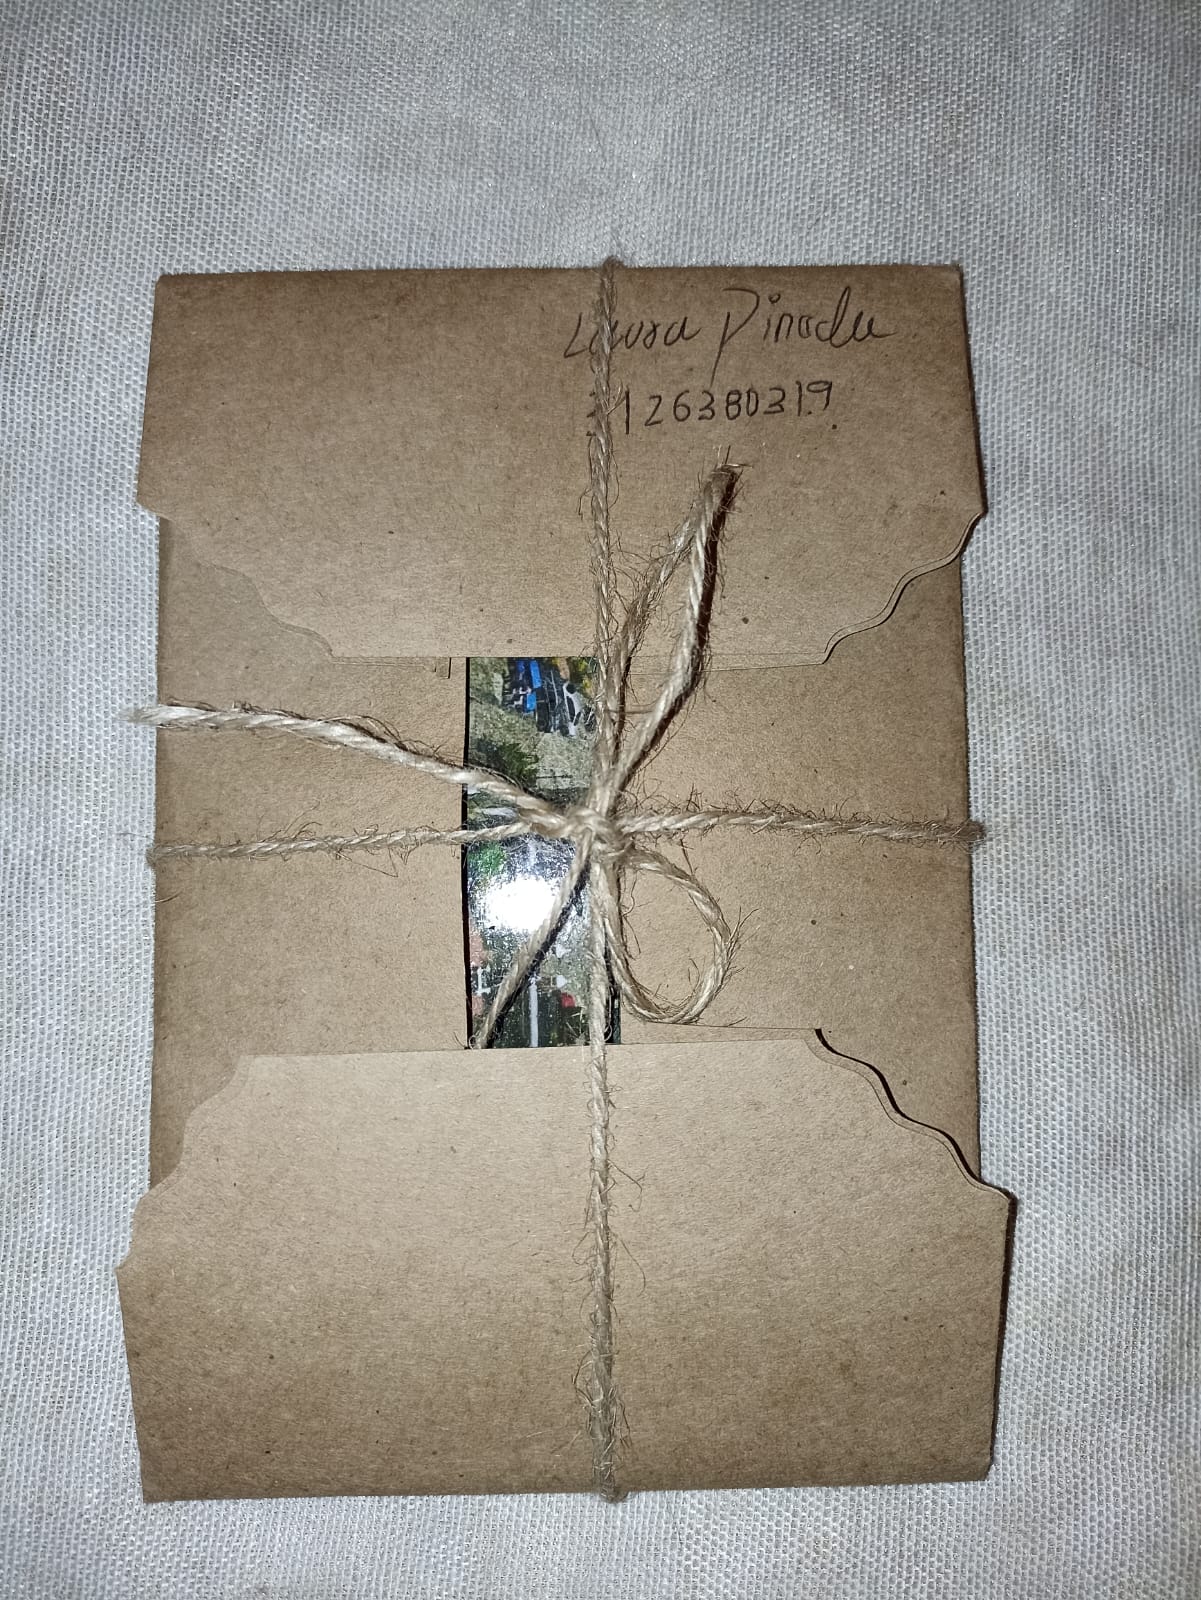 Laura Pineda
3126380319